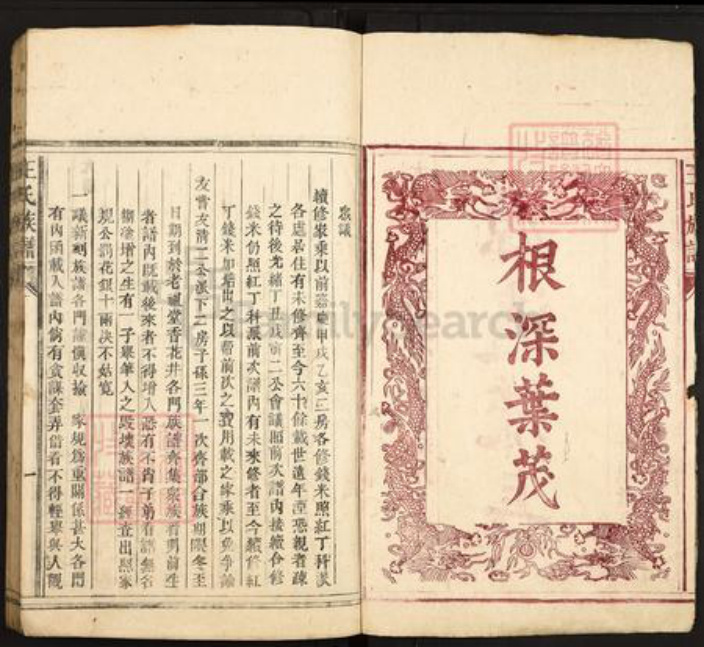 王氏族譜
根深葉茂
眾議
續修家乘以前嘉慶甲戌乙亥三房各修錢米照紅丁科派
各處居住有未修齊至今六十餘載世遠年湮恐親者疎
之待後光緒丁丑戊寅二公會議照前次譜內接續合修
錢米仍照紅丁科派前次譜內有未來修者至今續修紅
丁錢米加結出之以幫前次之費用載之家乘以免爭論
友嘗友清二公派下二房子孫三年一次齊部合族期限冬至
日期到於老祖堂香花井各門族譜齊集眾族看明前生
者譜內既載後來者不得增入恐有不肖子弟看譜無名
私塗增之生有一子舉筆人之毀壞族譜一經查出照家
規公罰花銀十兩決不姑寬
一議新刷族譜各門謹慎收撿 家規為重關係甚大各門
有內函載入譜內倘有貪謀套弄借看不得輕舉與人覷
王氏族譜
一
FamilySearch